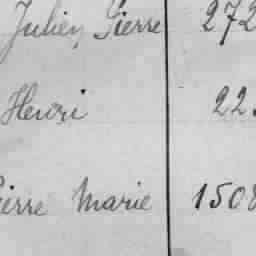 Julien Pierre 272
Henri 22
Pierre Marie 1508